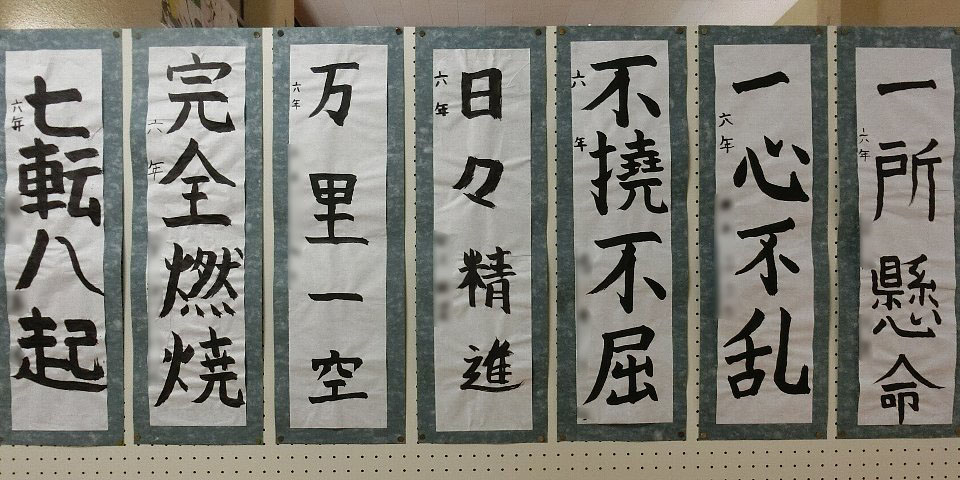 一所懸命
六年
一心不乱
六年
不撓不屈
六年
日々精進
六年
万里一空
六年
完全燃焼
六年
七転八起
六年